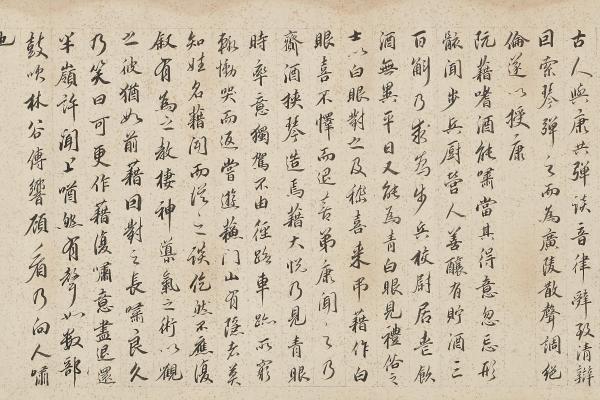 古人與康共彈談音律辭致清辯
因索琴彈之而為廣陵散聲調絕
倫遂以授康
阮籍嗜酒能嘯當其得意忽忘形
骸聞步兵廚營人善釀有貯酒三
百斛乃求為步兵校尉居喪飲
酒無異平日又能為青白眼見禮俗之
士以白眼對之及嵇喜來弔籍作白
眼喜不懌而退喜弟康聞之乃
齎酒挾琴造焉籍大悅乃見青眼
時率意獨駕不由徑路車跡所窮
輒慟哭而返嘗遊蘇門山有隱者莫
知姓名籍聞而從之談仡然不應復
敘有為之教棲神導氣之術以觀
之彼猶如前籍因對之長嘯良久
乃笑曰可更作籍復嘯意盡退還
半嶺許聞上㗜然有聲如數部
鼓吹林谷傳響顧看乃向人嘯
也